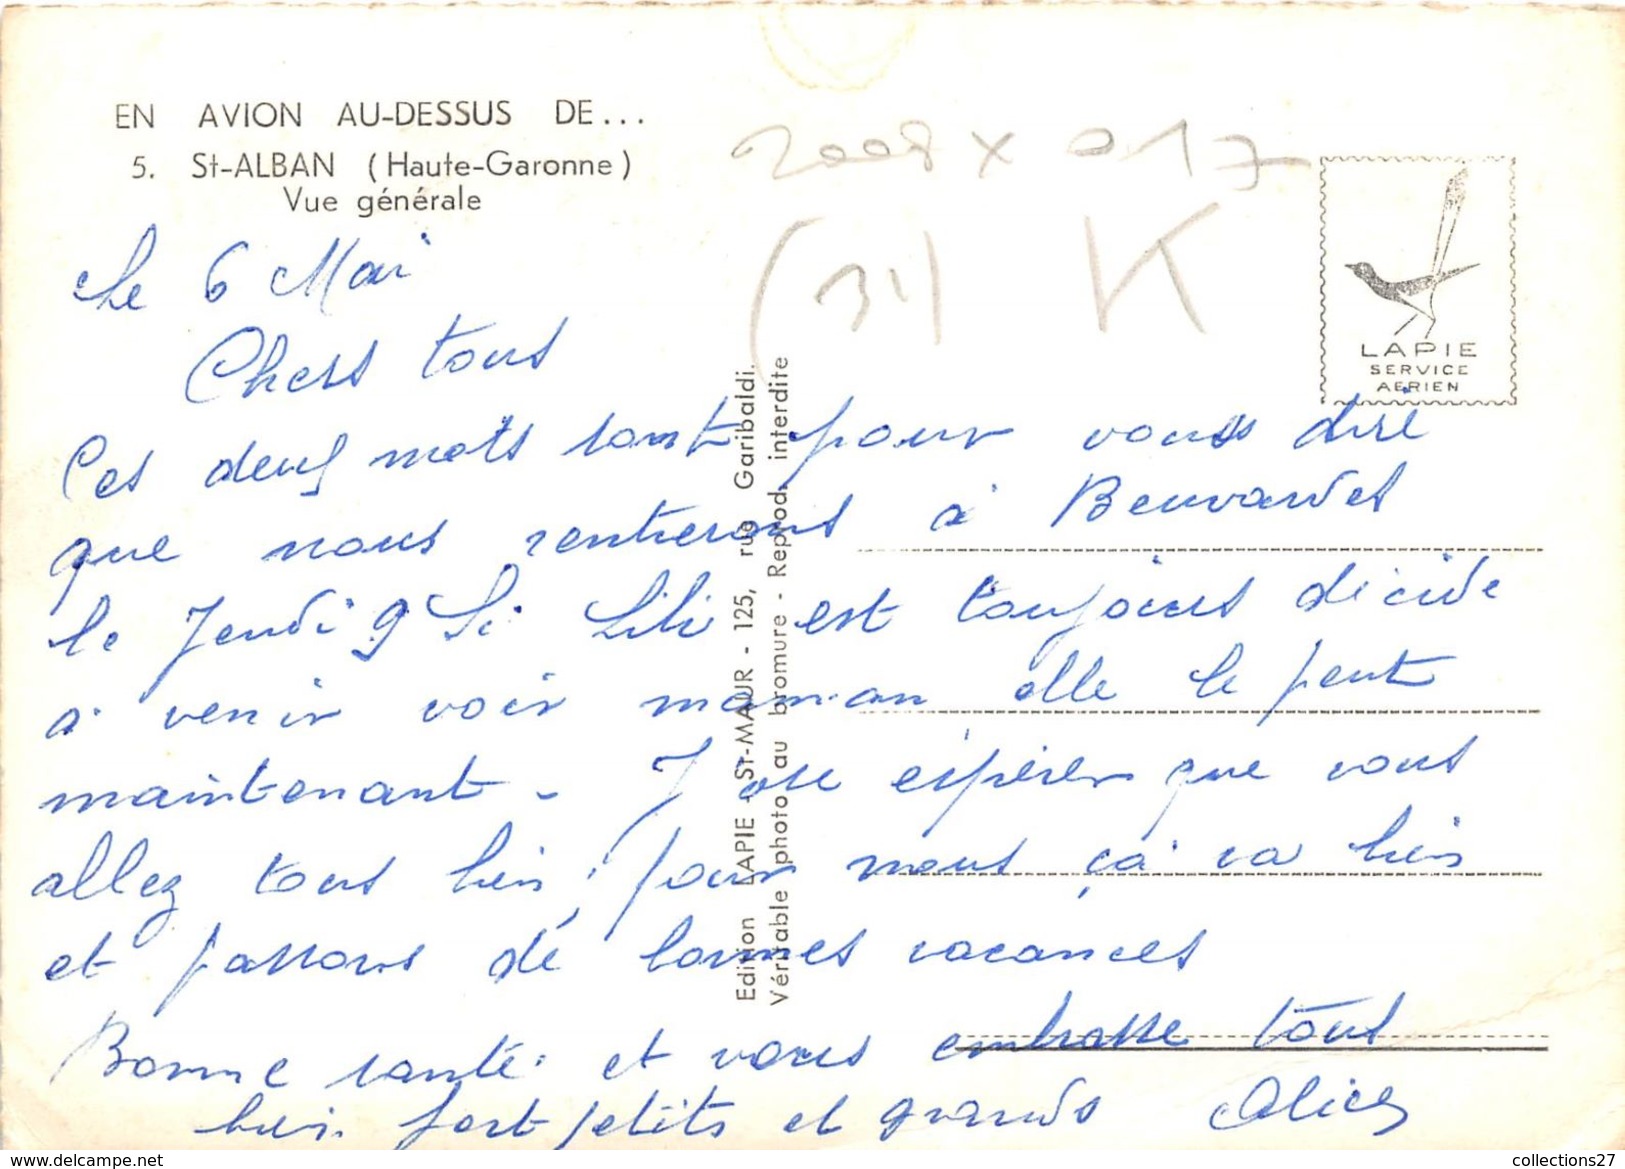 EN AVION AU-DESSUS DE...
5. St-ALBAN (Haute-Garonne)
Vue générale
2008 x 017
(31) K
LAPIE
SERVICE
AERIEN
Le 6 Mai
Chers tous
Ces deux mots sont pour vous dire
que nous rentrerons à Beuvardes
le Jeudi 9 Si Lili est toujours décidé
a venir voir maman elle le peut
maintenant - J'ose espérer que vous
allez tous bien, pour nous ça va bien
et passons de bonnes vacances
Bonne santé. et vous embrasse tous
bien fort petits et grands Alice
Edition LAPIE - St-MAUR - 125, rue Garibaldi.
Véritable photo au bromure - Reprod. interdite
collections27